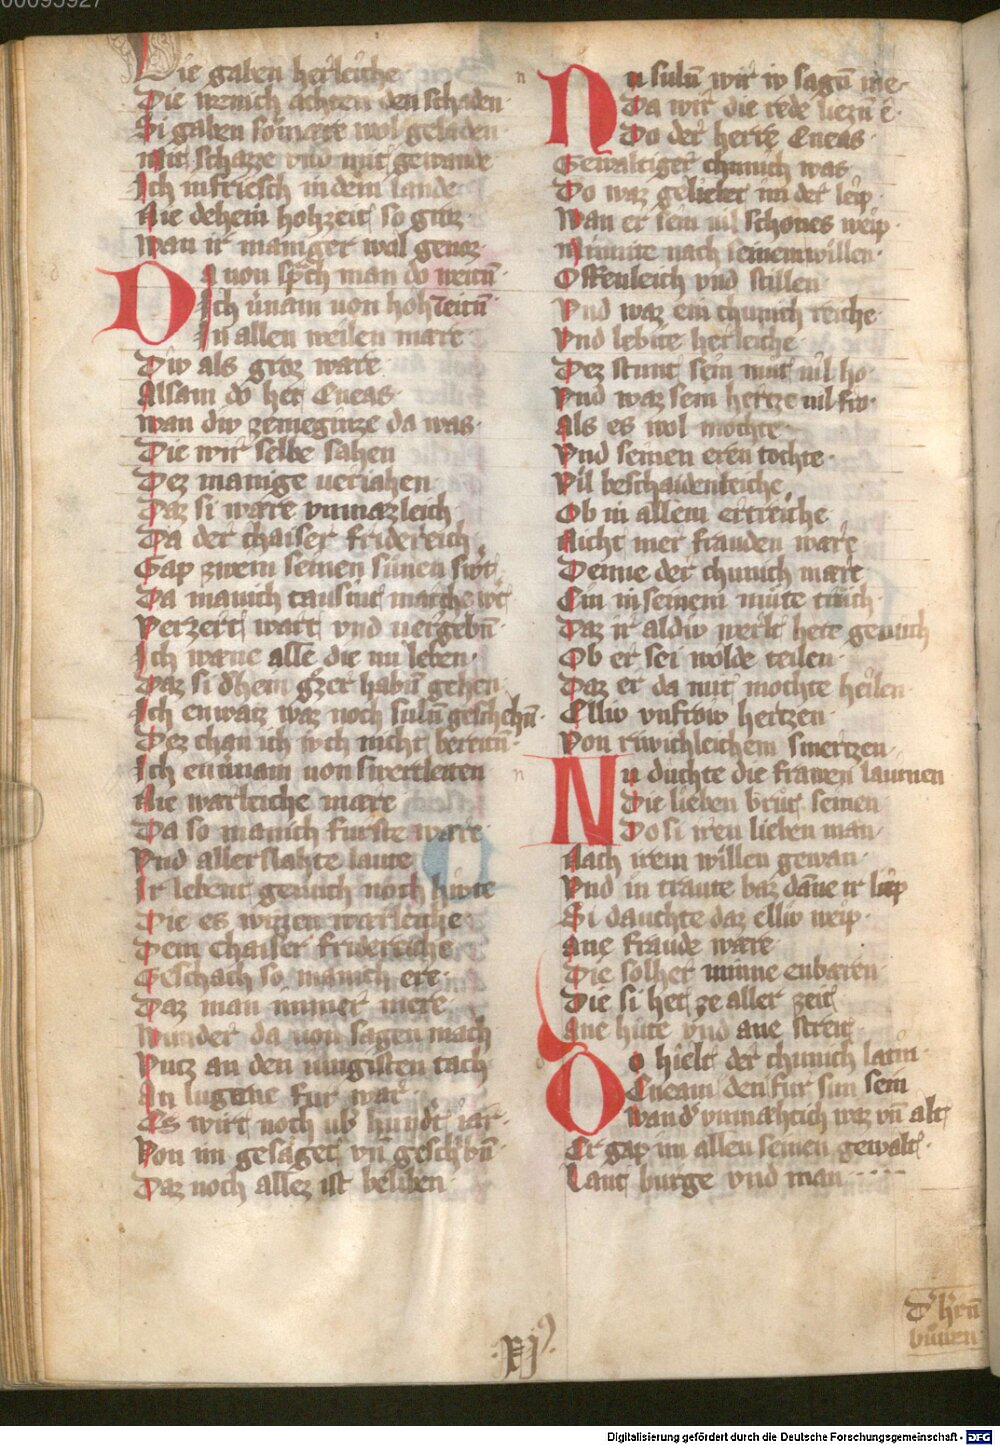 00095927
Die gaben herleiche
Die wenich achten den schaden
Si gaben söumare wol geladen
Mit schatze vnd mit gewande
Ich nifriesch in dem lande
Nie dehein hohzeit so groz
Wan ir maniger wol genoz
Da uon sp͛ch man do weitn̄
Ich ünam uon hohzeitn̄
In allen weilen mare
Div als groz ware
Alsam do het Eneas
wan div zemeginze da was
Die wir selbe sahen
Dez manige ueriahen
Daz si ware vnmazleich
Da der chaiser fridereich
Gap zwein seinen sünen swt̾
Da manich tausint marche wt̾
Verzert wart vnd uergebn̄
Ich wæne alle die nu leben
Daz si dhein grzer habn̄ gehen
Ich enwaiz waz noch suln̄ geschehn̄
Dez chan ich iwch nicht bereitn̄
Ich enünam uon swertleiten
Nie warleiche mare
Da so manich furste ware
Vnd aller slahte laute
Ir lebent genuch noch hiute
Die es wizzen warleiche
Dem chaiser fridereiche
Geschach so manich ere
Daz man immer mere
Wunder da uon sagen mach
Vntz an den iungisten tach
An lugene fur war
Es wirt noch ub̾ hund̾t iar
Von im gesaget vn̄ geschbn̄
Daz noch allez ist beliben
n
Nu suln̄ wir iv sagn̄ me
Da wir die rede liezn̄ e
Do der herre Eneas
Gewaltiger chunich was
Do waz geliebet im der leip
Wan er sein uil schones weip
Minnite nach seinem willen
Offenleich vnd stillen
Vnd waz ein chunich reiche
Vnd lebite herleiche
Dez stunt sein mut uil ho
Vnd waz sein hertze uil fro
Als es wol mochte
Vnd seinen eren tochte
Vil beschaidenleiche
Ob in allem ertreiche
Nicht mer frauden ware
Denne der chunich mare
Ein in seinem mute truch
Daz ir aldiv werlt hete genuch
Ob er sei wolde teilen
Daz er da mit mochte heilen
Elliv vnfroiv hertzen
Von riwichleichem smertzen
n
Nu duchte die frawen lauinen
Die lieben brut seinen
Do si iren lieben man
Nach irem willen gewan
Vnd in traute baz dāne ir leip
Si dauchte daz elliv weip
Ane fraude ware
Die solher minne enbaren
Die si het ze aller zeit
Ane hute vnd ane streit
Do hielt der chunich latin
Eneam den fur sun sein
wand̾ vnmæhtich waz vn̄ alt
Er gap im allen seinen gewalt
Lant burge vnd man
xj⁹
D' hern̄
buwen
Digitalisierung gefördert durch die Deutsche Forschungsgemeinschaft - DFG